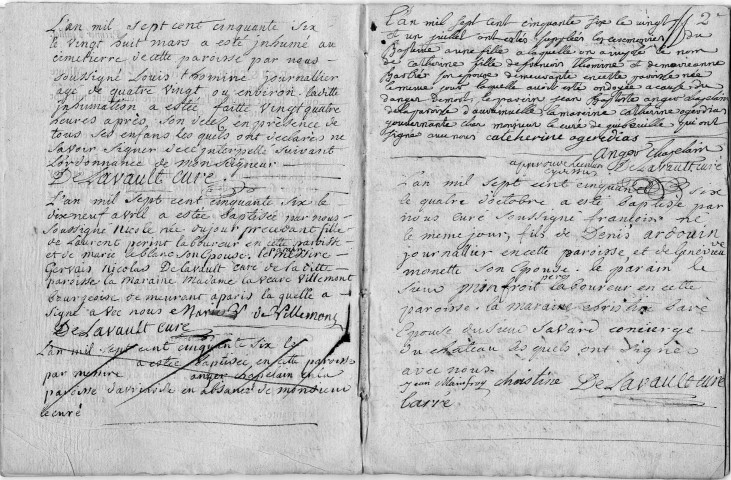 L'an mil sept cent cinquante six
le vingt huit mars a esté inhumé au
cimetierre de cette paroisse par nous
soussigné Louis thomine journallier
age de quatre vingt ou environ laditte
inhumation a estée faitte vingt quatre
heures apres son deces en presence de
tous ses enfans les quels ont declarés ne
savoir signer de ce interpellé suivant
L'ordonnance de monseigneur
De Lavault curé
L'an mil sept cent cinquante six le
dixneuf avril a estée baptisée par nous
soussigné nicole née du jour precedent fille
de Laurent laboureur en cette paroisse
et de marie le blanc son epouse le parain messire
Gervais nicolas Delavault curé de la ditte
paroisse la maraine madame la veuve villemont
bourgeoise demeurant a paris la quelle a
signé avec nous Marie V. de Villemont
De Lavault curé
L'an mil sept cent cinquante six le
a estée baptisée en cette paroisse
par messire anger chapelain en la
paroisse en absance de monsieur
le curé
2
L'an mil sept cent cinquante six le vingt
et un juillet ont estés supplées les ceremonies du
Bapteme a une fille a laquelle on a imposé le nom
de catherine fille de francois thomine et de marianne
son epouse demeurante en cette paroisse née
le meme jour laquelle avoit esté ondoyée a cause du
danger de mort le parein jean Baptiste anger chapelain
de la paroisse la mareine catherine
gouvernante chez monsieur le curé de qui ont
signé avec nous catcherine
Anger Chapelain
approuvé De Lavault curé
L'an mil sept cent cinquante six
le quatre d'octobre a esté baptisé par
nous curé soussigné francois né
le meme jour, fils de Denis ardouin
journallier en cette paroisse et de Genevieve
monette son epouse. le parain le
sieur minfroit laboureur en cette
paroisse. la maraine christine Caré
epouse du sieur savard concierge
du chateau les quels ont signé
avec nous.
jean Mainfroy christine De Lavault curé
Carré